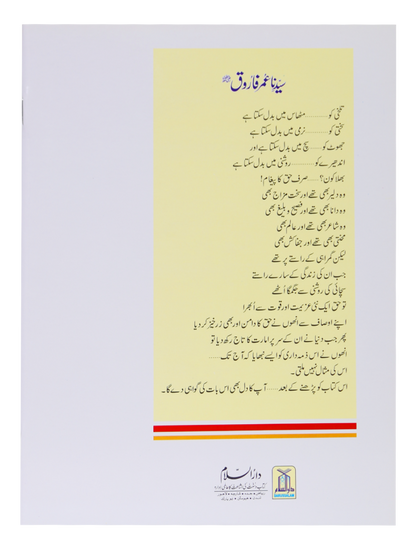 سیدنا عمر فاروق
تلخی کو ــــــ مٹھاس میں بدل سکتا ہے
سختی کو ــــــ نرمی میں بدل سکتا ہے
جھوٹ کو ــــــ سچ میں بدل سکتا ہے اور
اندھیرے کو ــــــ روشنی میں بدل سکتا ہے
بھلا کون؟ ــــــ صرف حق کا پیغام!
وہ دلیر بھی تھے اور سخت مزاج بھی
وہ دانا بھی تھے اور فصیح و بلیغ بھی
وہ شاعر بھی تھے اور عالم بھی
محنتی بھی تھے اور جفاکش بھی
لیکن گمراہی کے راستے پر تھے
جب ان کی زندگی کے سارے راستے
سچائی کی روشنی سے جگمگا اُٹھے
تو حق ایک نئی عزیمت اور قوت سے اُبھرا
اپنے اوصاف سے انھوں نے حق کا دامن اور بھی زرخیز کر دیا
پھر جب دنیا نے ان کے سر پر امارت کا تاج رکھ دیا تو
انھوں نے اس ذمہ داری کو ایسے نبھایا کہ آج تک ــــــ
اس کی مثال نہیں ملتی۔
اس کتاب کو پڑھنے کے بعد ــــــ آپ کا دل بھی اس بات کی گواہی دے گا۔
دارالسلام
کتاب و سنت کی اشاعت کا عالمی ادارہ
دارالسلام
DARUSSALAM